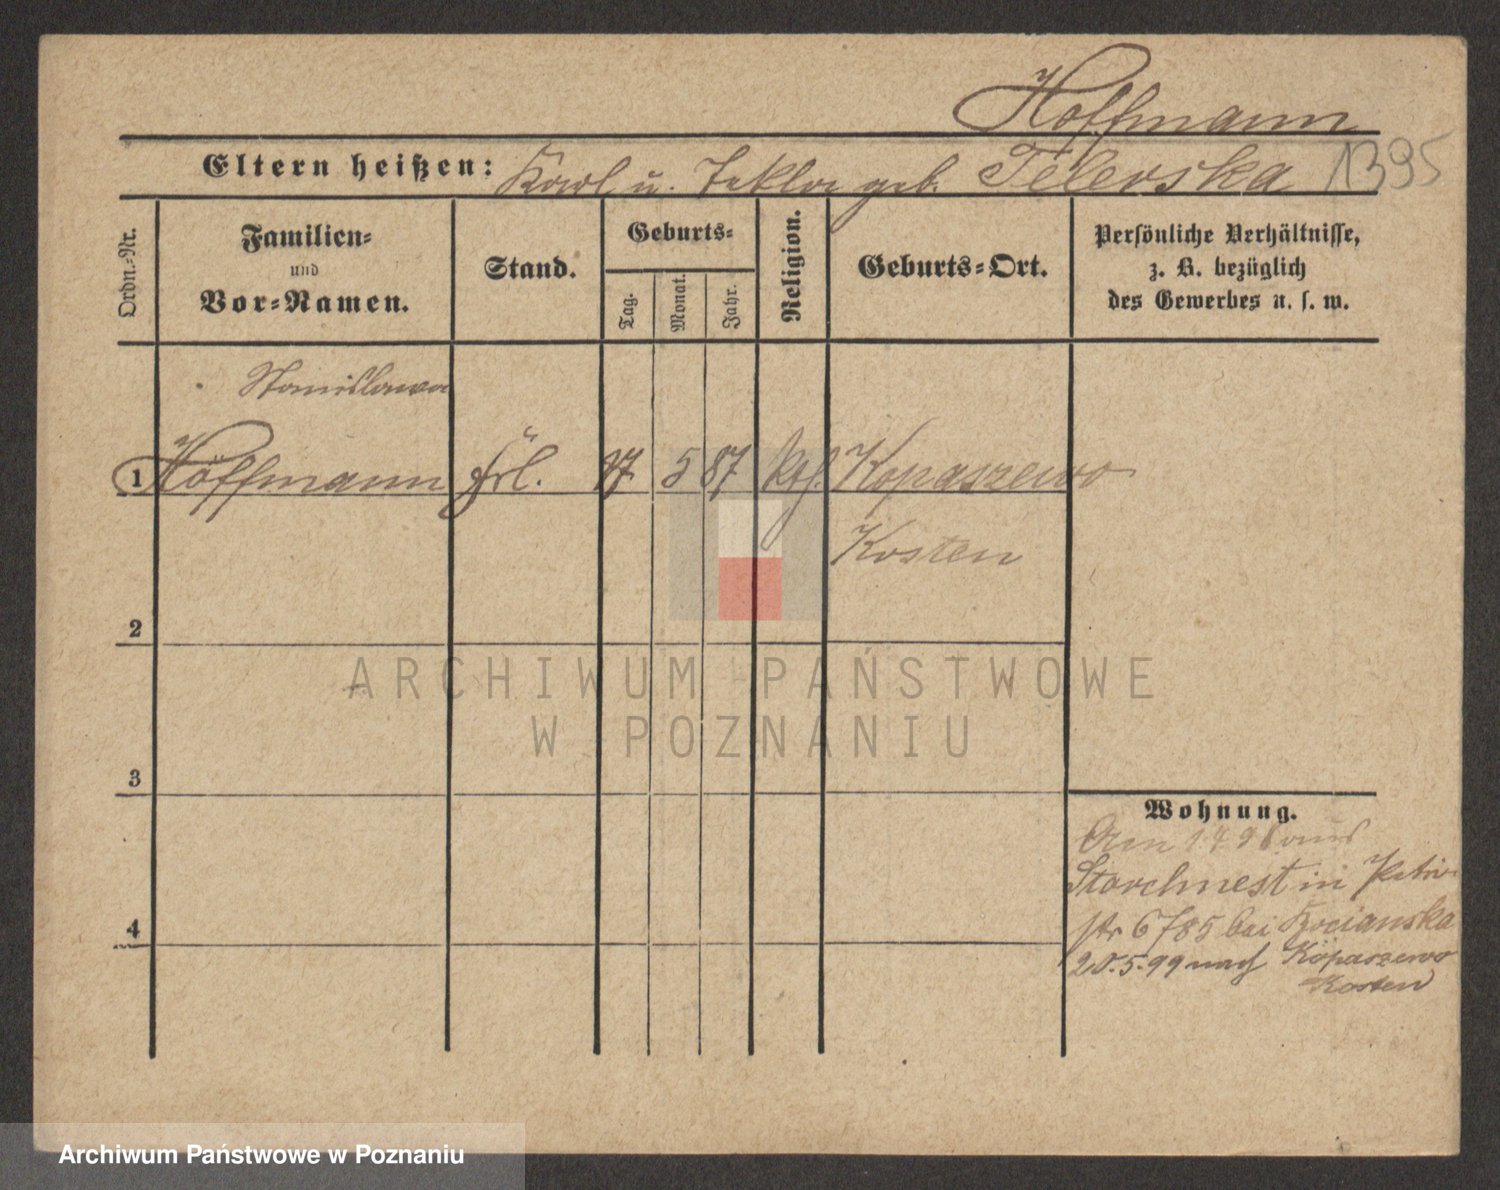 Hoffmann
Eltern heißen: Karl u. Tekla geb. Telerska 1395
Ordn.-Nr.
Familien-
und
Vor-Namen.
Stand.
Geburts-
Tag.
Monat.
Jahr.
Religion.
Geburts-Ort.
Persönliche Verhältnisse,
z. B. bezüglich
des Gewerbes u. s. w.
Stanislawa
1 Hoffmann Frl. 17 5 87 kth. Kopaszewo
Kosten
2
3
4
Wohnung.
Am 1 98 aus
Storchnest in Petri-
str 6 bei Kocianska
20.5.99 nach Kopaszewo
Kosten
ARCHIWUM PAŃSTWOWE
W POZNANIU
Archiwum Państwowe w Poznaniu